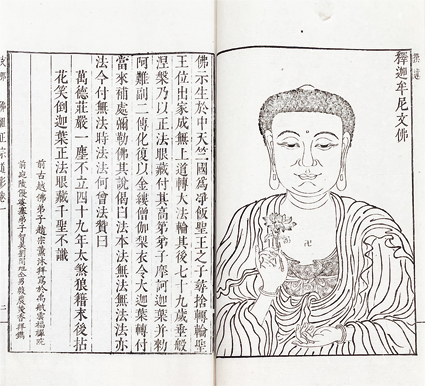 釋迦牟尼文佛
佛示生於中天竺國爲淨飯聖王之子棄捨轉輪聖
王位出家成無上道轉大法輪其後七十九年垂般
涅槃乃以正法眼藏付其高第弟子摩訶迦葉并勑
阿難副二傳化復以金縷僧伽梨衣令大迦葉轉付
當來補處彌勒佛其說偈曰法本法無法無法法亦
法今付無法時法法何曾法贊曰
萬德莊嚴一塵不立四十九年太煞狼藉末後拈
花笑倒迦葉正法眼藏千聖不識
前古越佛弟子趙宗沐拜寫於禹雲福禪院
佛祖正宗道影卷一
二
卍